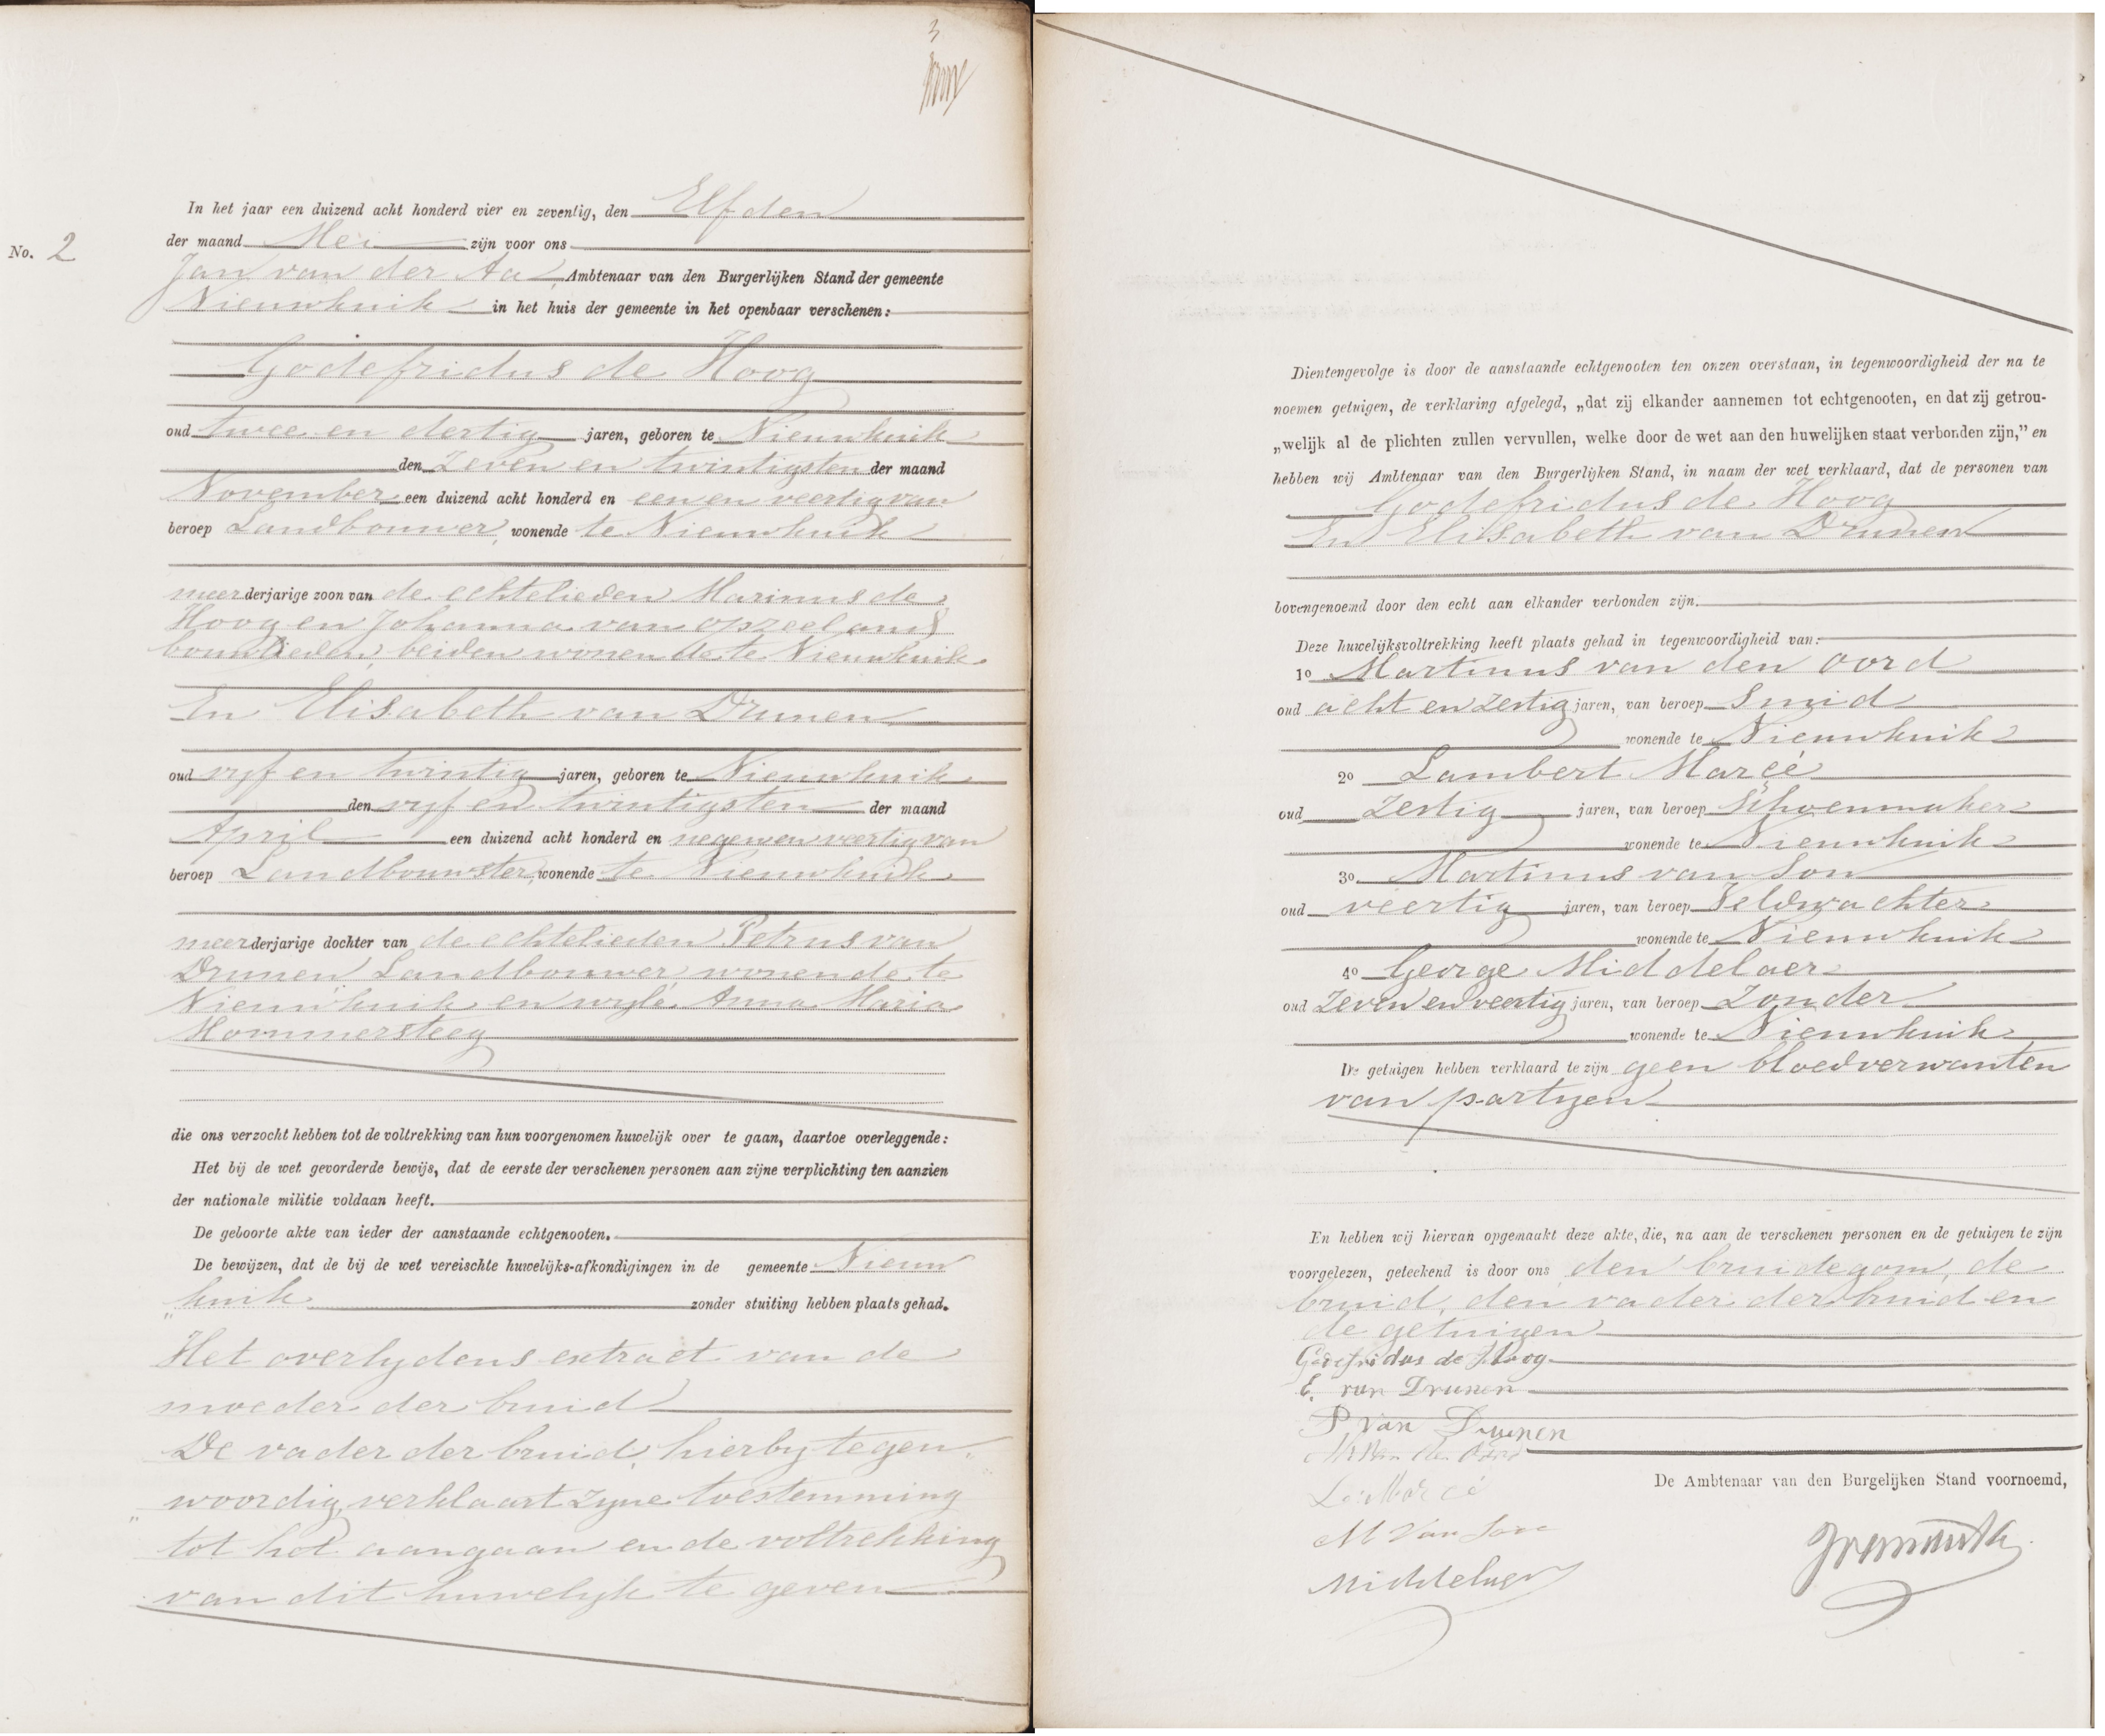 3
In het jaar een duizend acht honderd vier en zeventig, den Elfden
No. 2
der maand Mei zijn voor ons
Jan van der Aa, Ambtenaar van den Burgerlijken Stand der gemeente
Nieuwkuik in het huis der gemeente in het openbaar verschenen:
Godefridus de Hoog
oud twee en dertig jaren, geboren te Nieuwkuik
den zeven en twintigsten der maand
November een duizend acht honderd en een en veertig van
beroep Landbouwer, wonende te Nieuwkuik
meerderjarige zoon van de echtelieden Marinus de
Hoog en Johanna van opzeeland
bouwlieden, beiden wonende te Nieuwkuik
En Elisabeth van Drunen
oud vyf en twintig jaren, geboren te Nieuwkuik
den vyf en twintigsten der maand
April een duizend acht honderd en negen en veertig van
beroep Landbouwster, wonende te Nieuwkuik
meerderjarige dochter van de echtelieden Petrus van
Drunen Landbouwer wonende te
Nieuwkuik en wyle Anna Maria
Mommersteeg
die ons verzocht hebben tot de voltrekking van hun voorgenomen huwelijk over te gaan, daartoe overleggende:
Het bij de wet gevorderde bewijs, dat de eerste der verschenen personen aan zijne verplichting ten aanzien
der nationale militie voldaan heeft.
De geboorte akte van ieder der aanstaande echtgenooten.
De bewijzen, dat de bij de wet vereischte huwelijks-afkondigingen in de gemeente Nieuw
"kuik zonder stuiting hebben plaats gehad.
Het overlydens extract van de
moeder der bruid
De vader der bruid, hierby tegen
"woordig, verklaart zyne toestemming
tot het aangaan en de voltrekking
van dit huwelyk te geven
Dientengevolge is door de aanstaande echtgenooten ten onzen overstaan, in tegenwoordigheid der na te
noemen getuigen, de verklaring afgelegd, „dat zij elkander aannemen tot echtgenooten, en dat zij getrou-
„welijk al de plichten zullen vervullen, welke door de wet aan den huwelijken staat verbonden zijn,” en
hebben wij Ambtenaar van den Burgerlijken Stand, in naam der wet verklaard, dat de personen van
Godefridus de Hoog
En Elisabeth van Drunen
bovengenoemd door den echt aan elkander verbonden zijn.
Deze huwelijksvoltrekking heeft plaats gehad in tegenwoordigheid van:
1o Martinus van den Oord
oud acht en zestig jaren, van beroep Smid
wonende te Nieuwkuik
2o Lambert Marcé
oud zestig jaren, van beroep Schoenmaker
wonende te Nieuwkuik
3o. Martinus van Son
oud veertig jaren, van beroep Veldwachter
wonende te Nieuwkuik
4o George Middelaer
oud zeven en veertig jaren, van beroep zonder
wonende te Nieuwkuik
De getuigen hebben verklaard te zijn geen bloedverwanten
van partyen
En hebben wij hiervan opgemaakt deze akte, die, na aan de verschenen personen en de getuigen te zijn
voorgelezen, geteekend is door ons den bruidegom, de
bruid, den vader der bruid en
de getuigen
Godefridus de Hoog
E. van Drunen
P van Drunen
M Van den Oord
L. Marcé
De Ambtenaar van den Burgelijken Stand voornoemd,
M Van Son
Middelaer